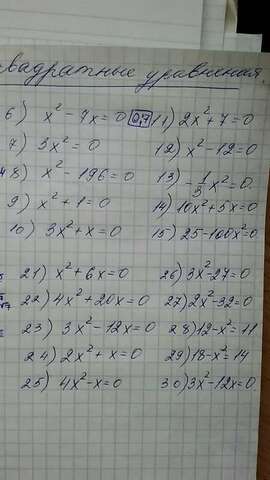 квадратные уравнения
6) x² - 7x = 0 0,7 11) 2x² + 7 = 0
7) 3x² = 0 12) x² - 12 = 0
8) x² - 196 = 0 13) -1/3 x² = 0
9) x² + 1 = 0 14) 10x² + 5x = 0
10) 3x² + x = 0 15) 25 - 100x² = 0
21) x² + 6x = 0 26) 3x² - 27 = 0
22) 4x² + 20x = 0 27) 2x² - 32 = 0
23) 3x² - 12x = 0 28) 12 - x² = 11
24) 2x² + x = 0 29) 18 - x² = 14
25) 4x² - x = 0 30) 3x² - 12x = 0